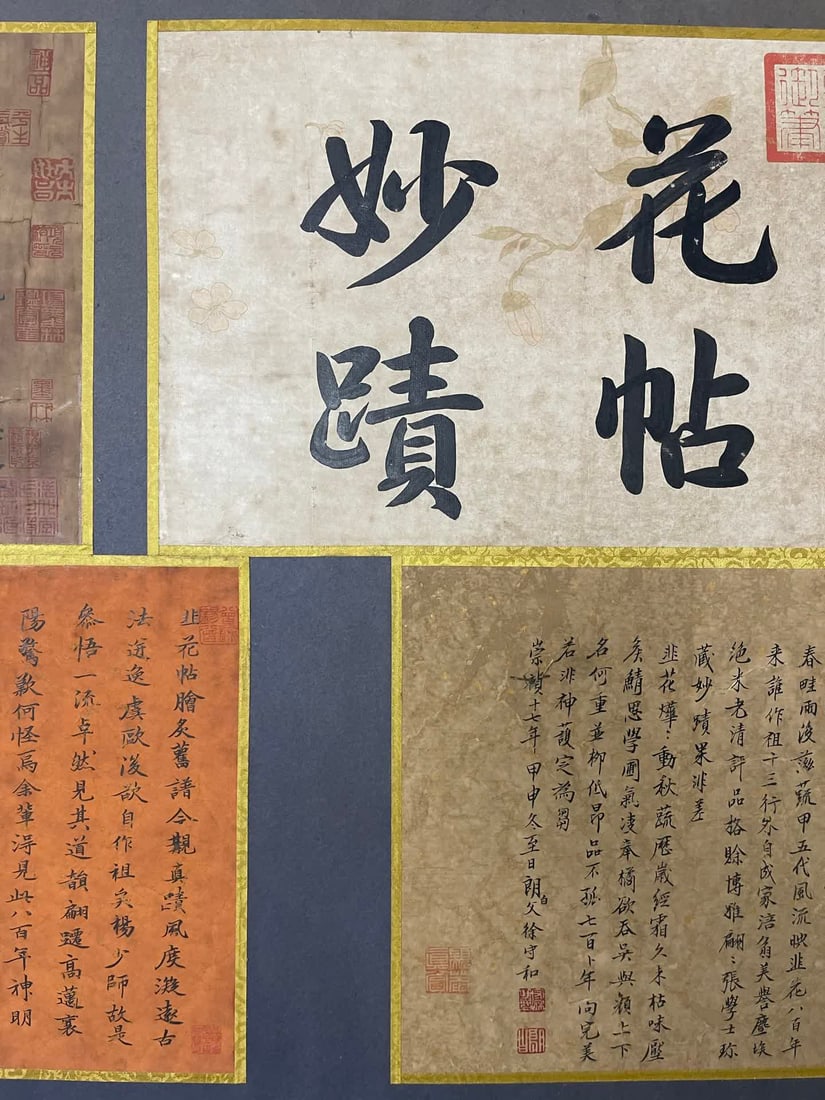 御筆
花帖
妙蹟
春畦雨後茁蔬甲五代風流映韭花八百年
来誰作祖十三行外自成家涪翁美譽塵埃
絶米老清評品格賒博雅翩〻張學士珎
藏妙蹟果非差
韭花燁〻動秋蔬歷歲經霜久未枯味壓
矦鯖思學圃氣凌奉橘欲吞吳與顏上下
名何重並柳低昂品不孤七百卜年向完美
若非神護定為芻
崇禎十七年甲申冬至日朗白父徐守和
韭花帖膾炙舊譜今觀真蹟風度凝遠古
法迸逸虞歐後欲自作祖矣楊少師故是
叅悟一流卓然見其道韻翩躚高邁襄
陽驚歎何怪焉余輩淂見此八百年神明